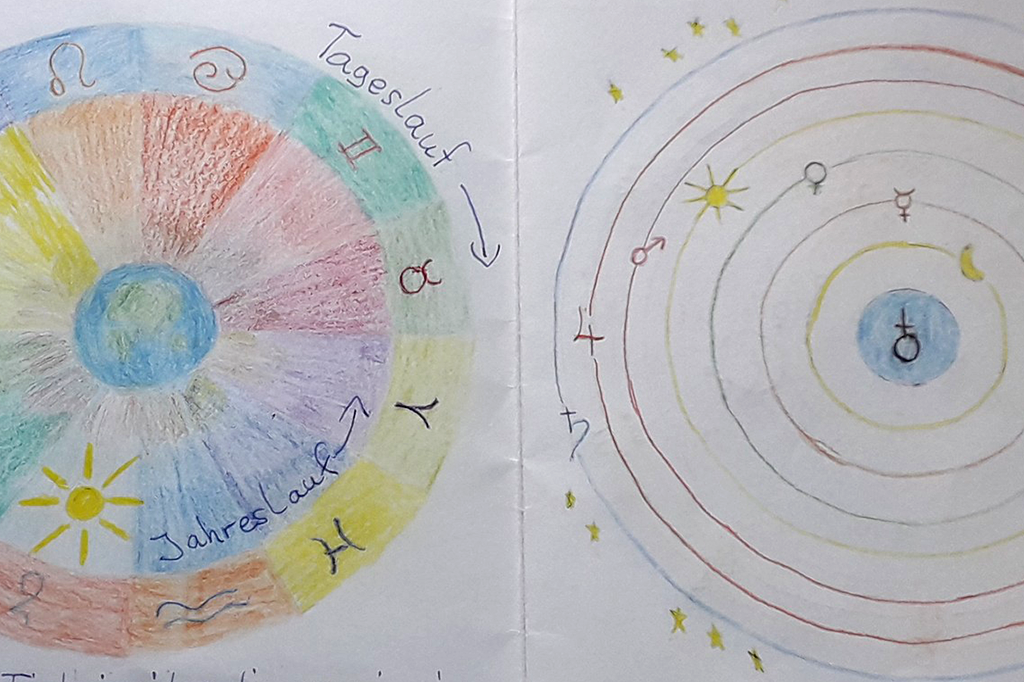 Tageslauf
Jahreslauf